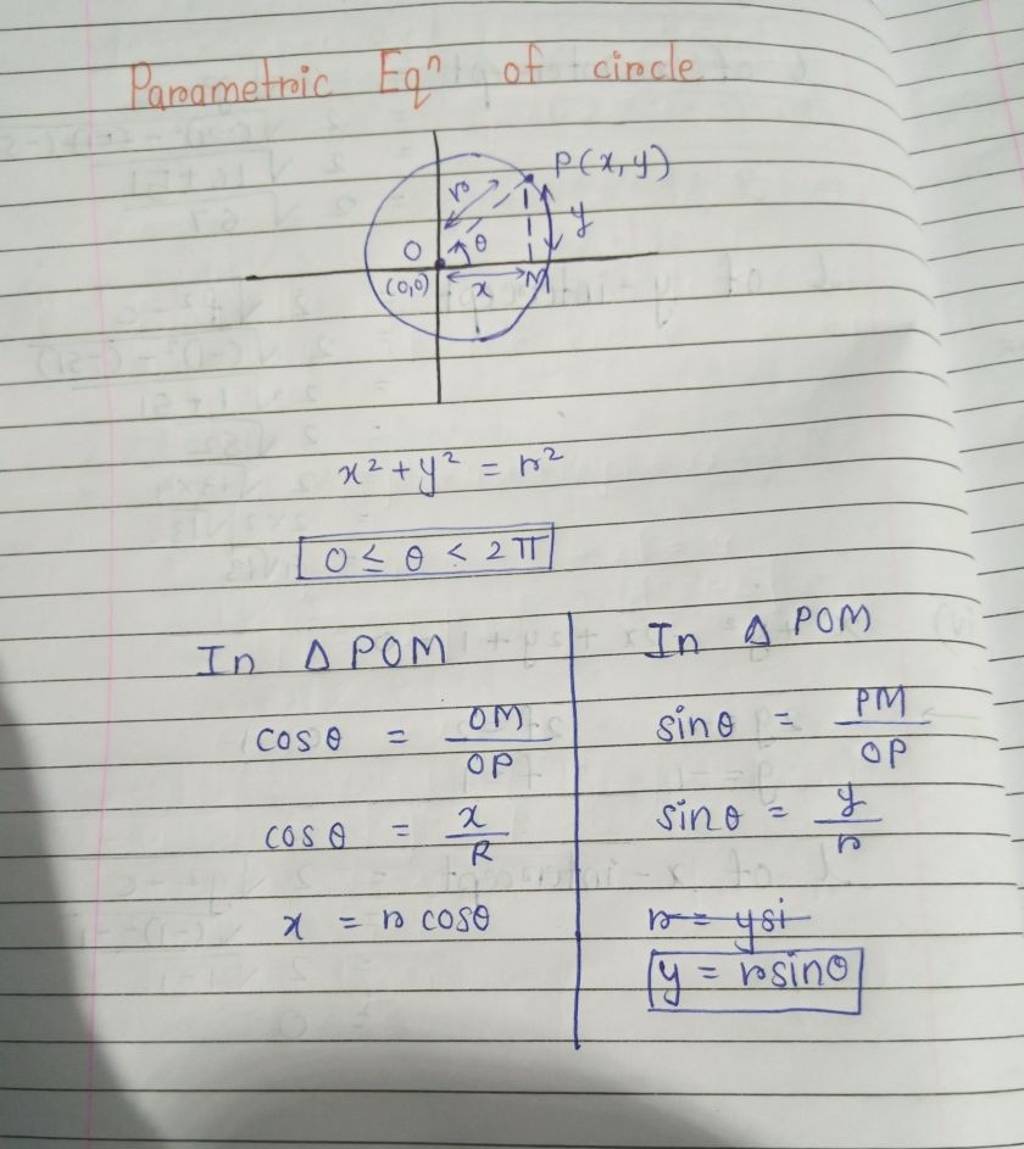 Parametric Eqⁿ of circle
P(x,y)
r
y
O
θ
(0,0)
x
M
x² + y² = r²
0 ≤ θ < 2π
In Δ POM
cosθ = OM/OP
cosθ = x/R
x = r cosθ
In Δ POM
sinθ = PM/OP
sinθ = y/r
r = ysi
y = rsinθ